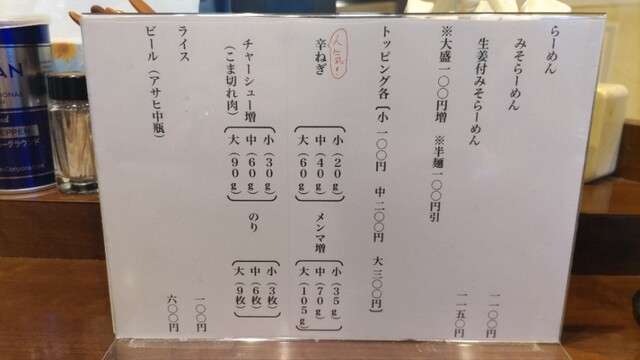 らーめん
みそらーめん 一一〇〇円
生姜付みそらーめん 一一五〇円
※大盛一〇〇円増 ※半麺一〇〇円引
トッピング各〔小 一〇〇円 中 二〇〇円 大 三〇〇円〕
人気!
辛ねぎ
小(20g)
中(40g)
大(60g)
メンマ増
小(35g)
中(70g)
大(105g)
チャーシュー増
(こま切れ肉)
小(30g)
中(60g)
大(90g)
のり
小(3枚)
中(6枚)
大(9枚)
ライス 一〇〇円
ビール(アサヒ中瓶) 六〇〇円
AN
PEPPER